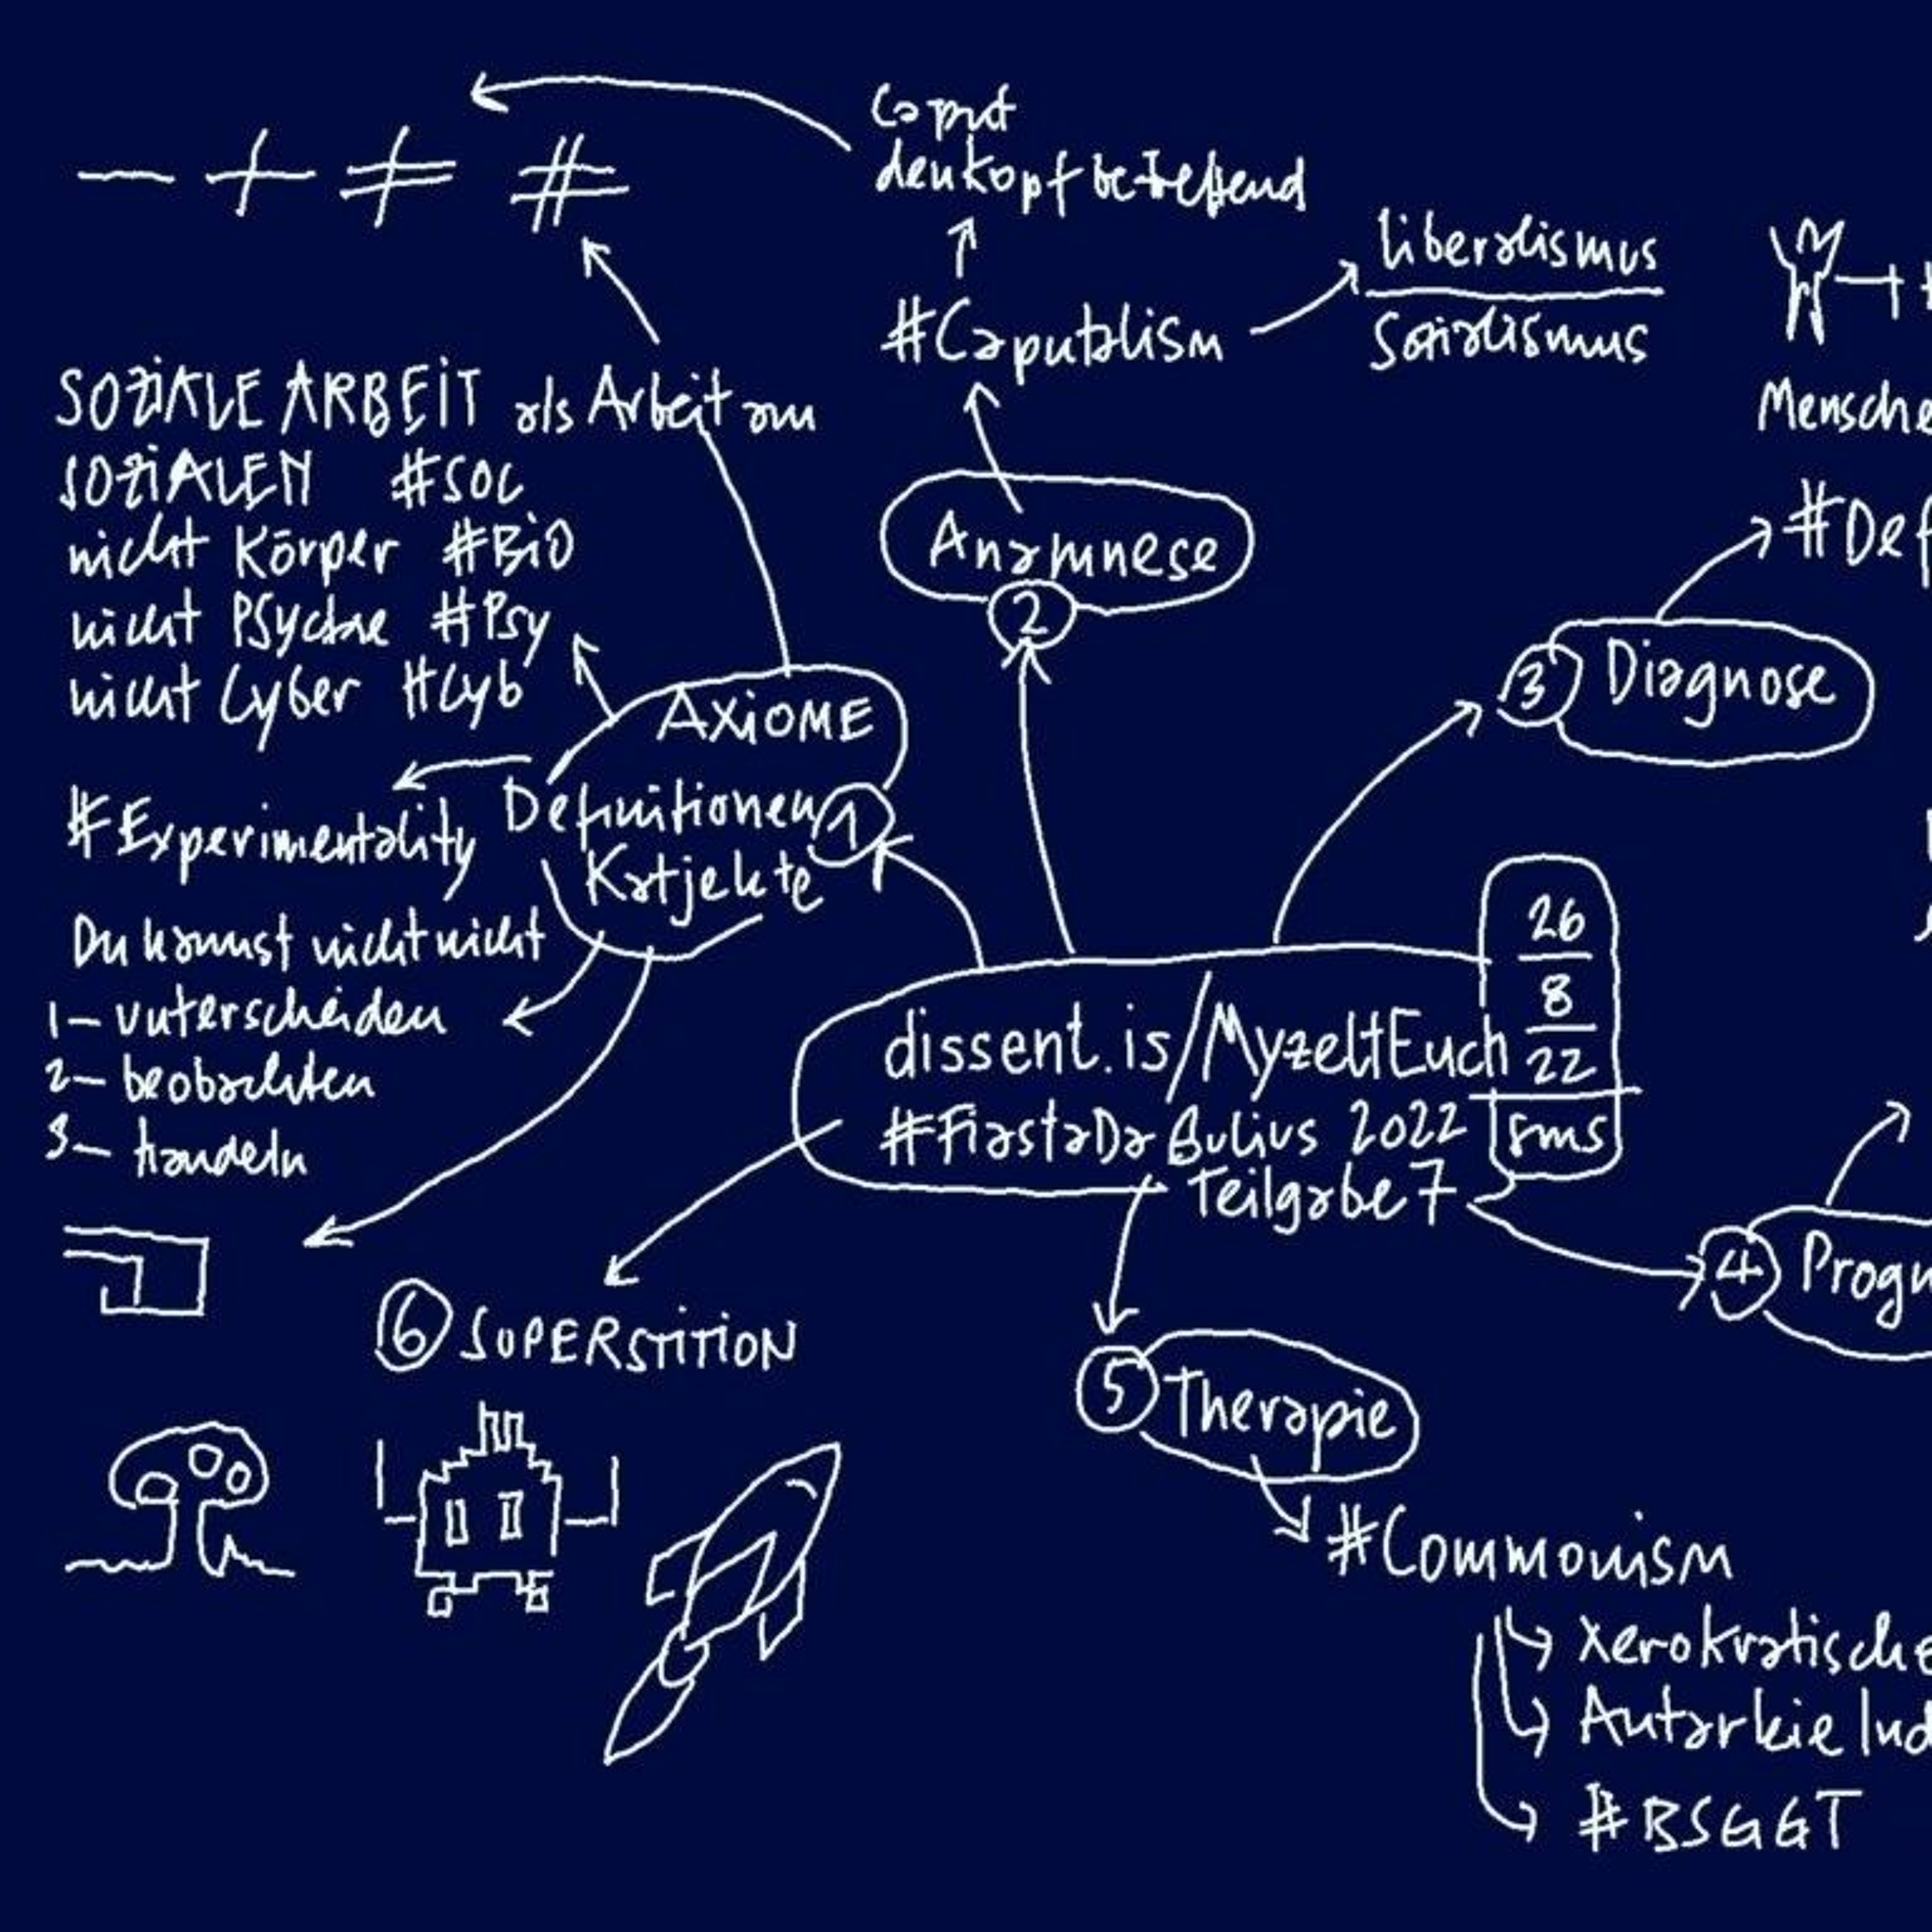 Caput
den kopf betreffend
− + ≠ #
liberalismus
Sozialismus
#Caputalism
Mensche
SOZIALE ARBEIT als Arbeit am
SOZIALEN #SOC
nicht Körper #BiO
nicht PSyche #Psy
nicht Cyber #Cyb
Anamnese
2
#Def
3 Diagnose
AXiOME
Definitionen 1
Katjekte
#Experimentality
Du kannst nicht nicht
1- unterscheiden
2- beobachten
3- handeln
26
8
22
sms
dissent.is/MyzeltEuch
#FiastaDaBulius 2022
Teilgabe 7
4 Progn
6 SUPERSTiTiON
5 Therapie
#Commonism
Xerokratische
Autarkie Ind
#BSGGT